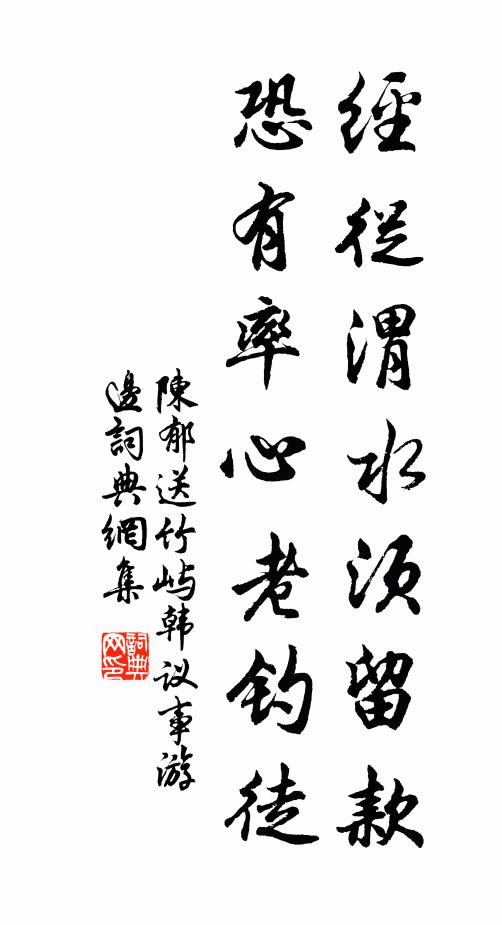 經從渭水須留款
恐有率心老钓徒
陳郁送竹屿韩议事游
邊詞典網集
詞典
网印